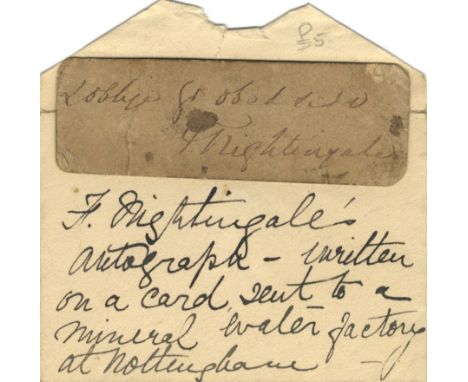 £5
F. Nightingale
F. Nightingale's
autograph – written
on a card sent to a
mineral water factory
at Nottingham –